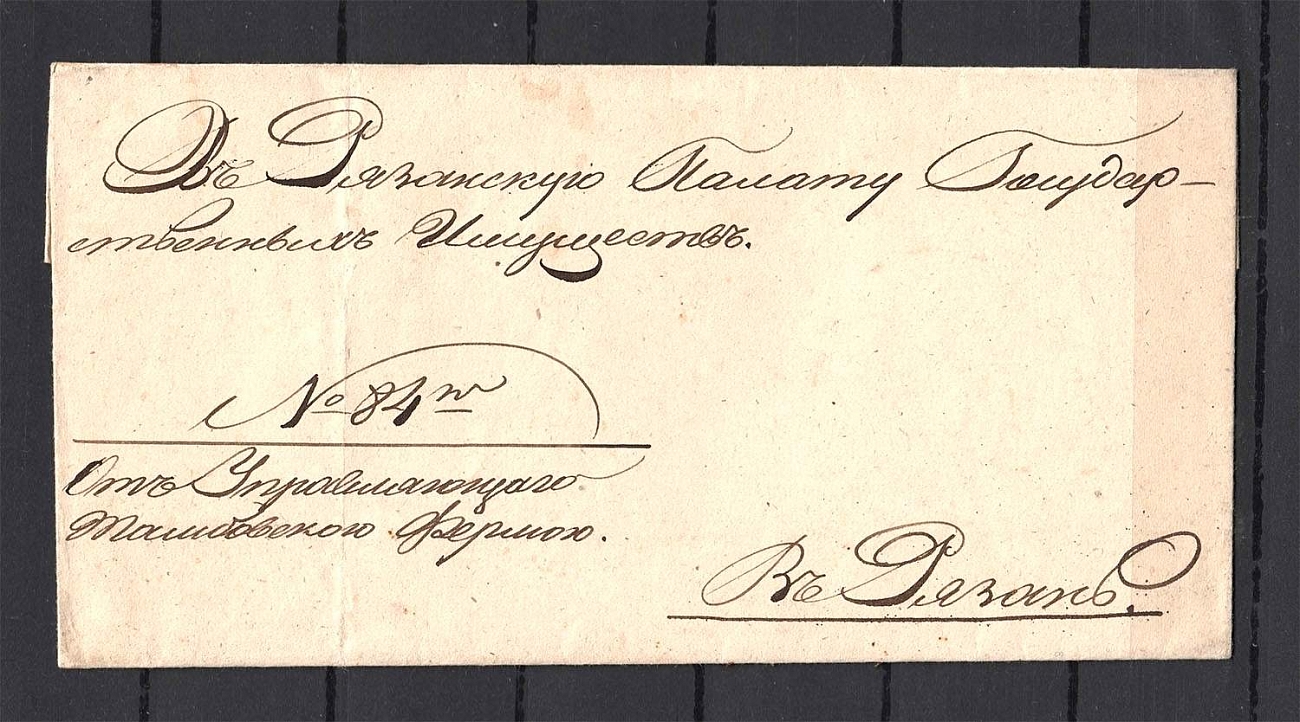 Въ Рязанскую Палату Государ-
ственныхъ Имуществъ.
№ 84й
Отъ Управляющаго
Тамбовскою Фермою.
Въ Рязань.